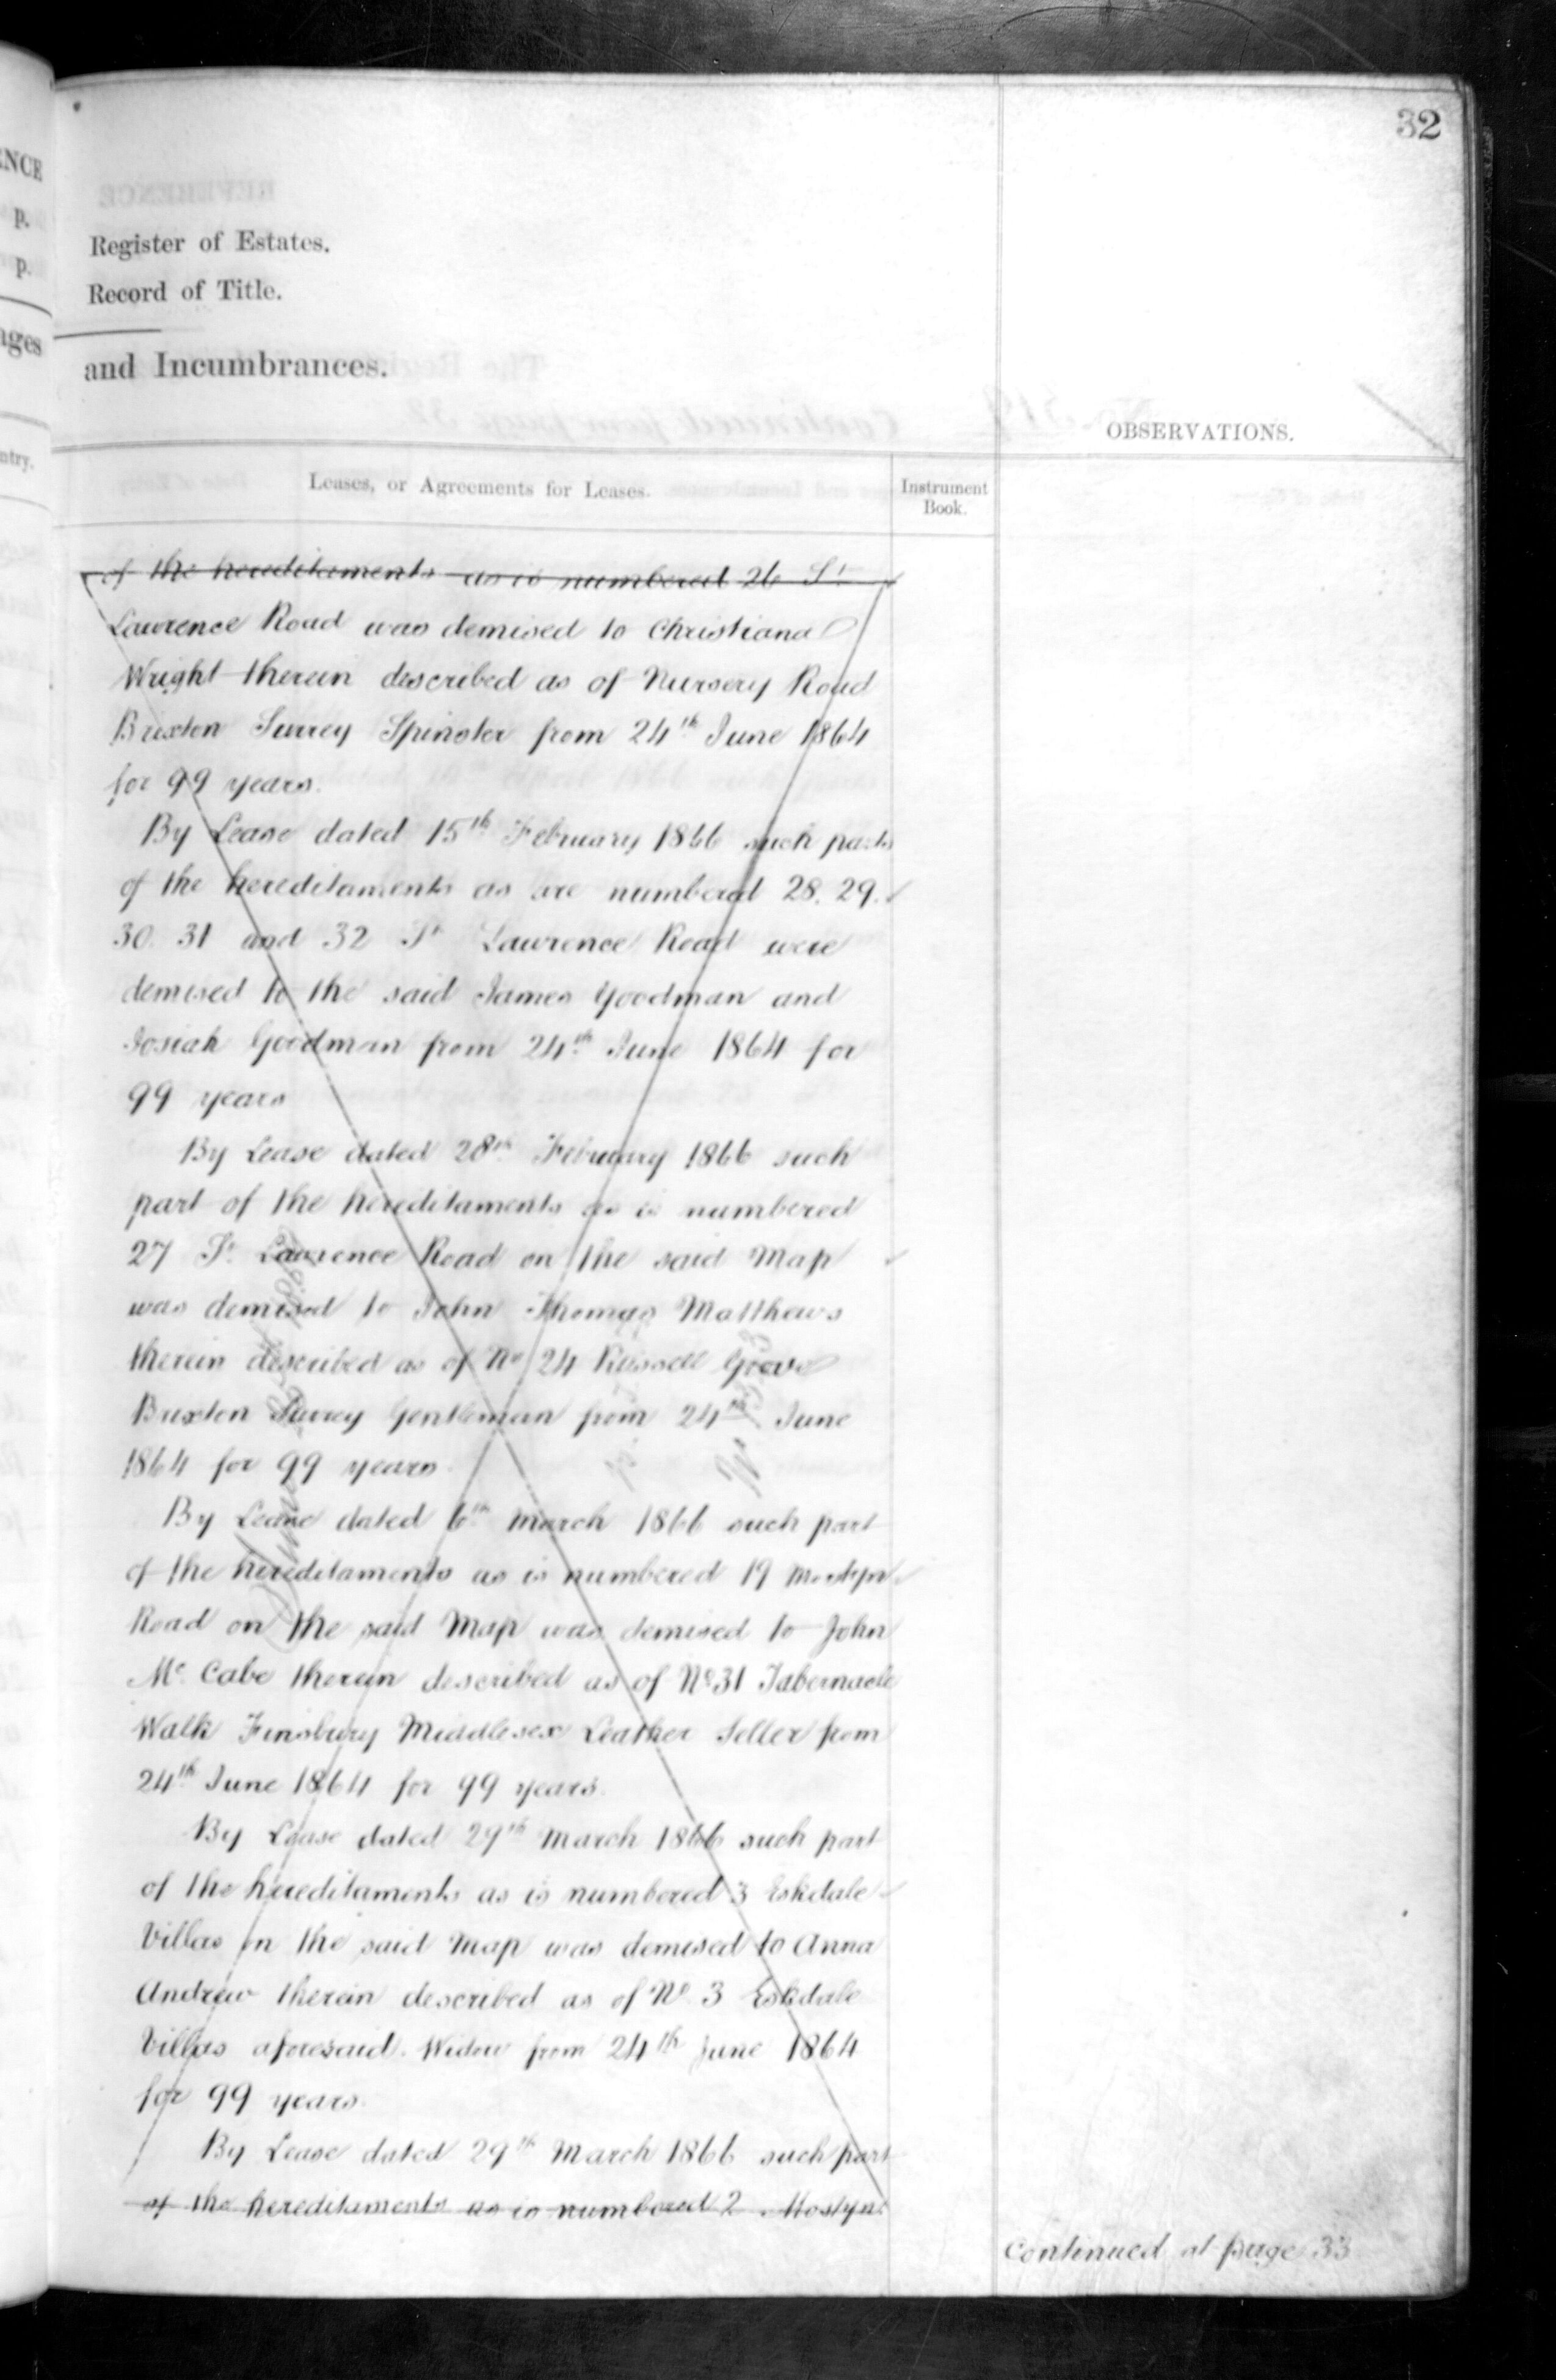 32
ENCE
p.
p.
ages
ntry.
Register of Estates.
Record of Title.
and Incumbrances.
OBSERVATIONS.
Leases, or Agreements for Leases.
Instrument
Book.
of the hereditaments as is numbered 26 St
Lawrence Road was demised to Christiana
Wright therein described as of Nursery Road
Brixton Surrey Spinster from 24th June 1864
for 99 years.
By Lease dated 15th February 1866 such parts
of the hereditaments as are numbered 28. 29.
30. 31 and 32 St Lawrence Road were
demised to the said James Goodman and
Josiah Goodman from 24th June 1864 for
99 years
By Lease dated 28th February 1866 such
part of the hereditaments as is numbered
27 St Lawrence Road on the said Map
was demised to John Thomas Matthews
therein described as of No 24 Russell Grove
Brixton Surrey Gentleman from 24th June
1864 for 99 years.
By Lease dated 6th March 1866 such part
of the hereditaments as is numbered 19 Mostyn
Road on the said Map was demised to John
Mc Cabe therein described as of No 31 Tabernacle
Walk Finsbury Middlesex Leather Seller from
24th June 1864 for 99 years.
By Lease dated 29th March 1866 such part
of the hereditaments as is numbered 3 Eskdale
Villas on the said Map was demised to Anna
Andrew therein described as of No 3 Eskdale
Villas aforesaid. Widow from 24th June 1864
for 99 years.
By Lease dated 29th March 1866 such part
of the hereditaments as is numbered 2 Mostyn
Continued at page 33